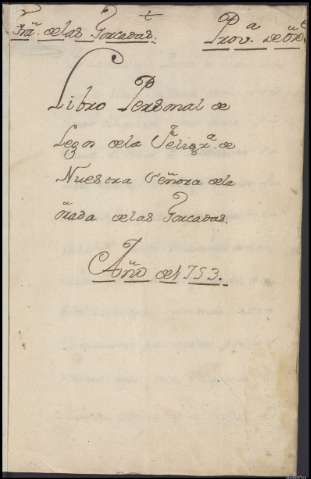 Sra. de las Forcadas. Prova. de Ore.
Libro Personal de
Legos de la Feligra. de
Nuestra Señora de la
de las Forcadas.
Año de 1753.